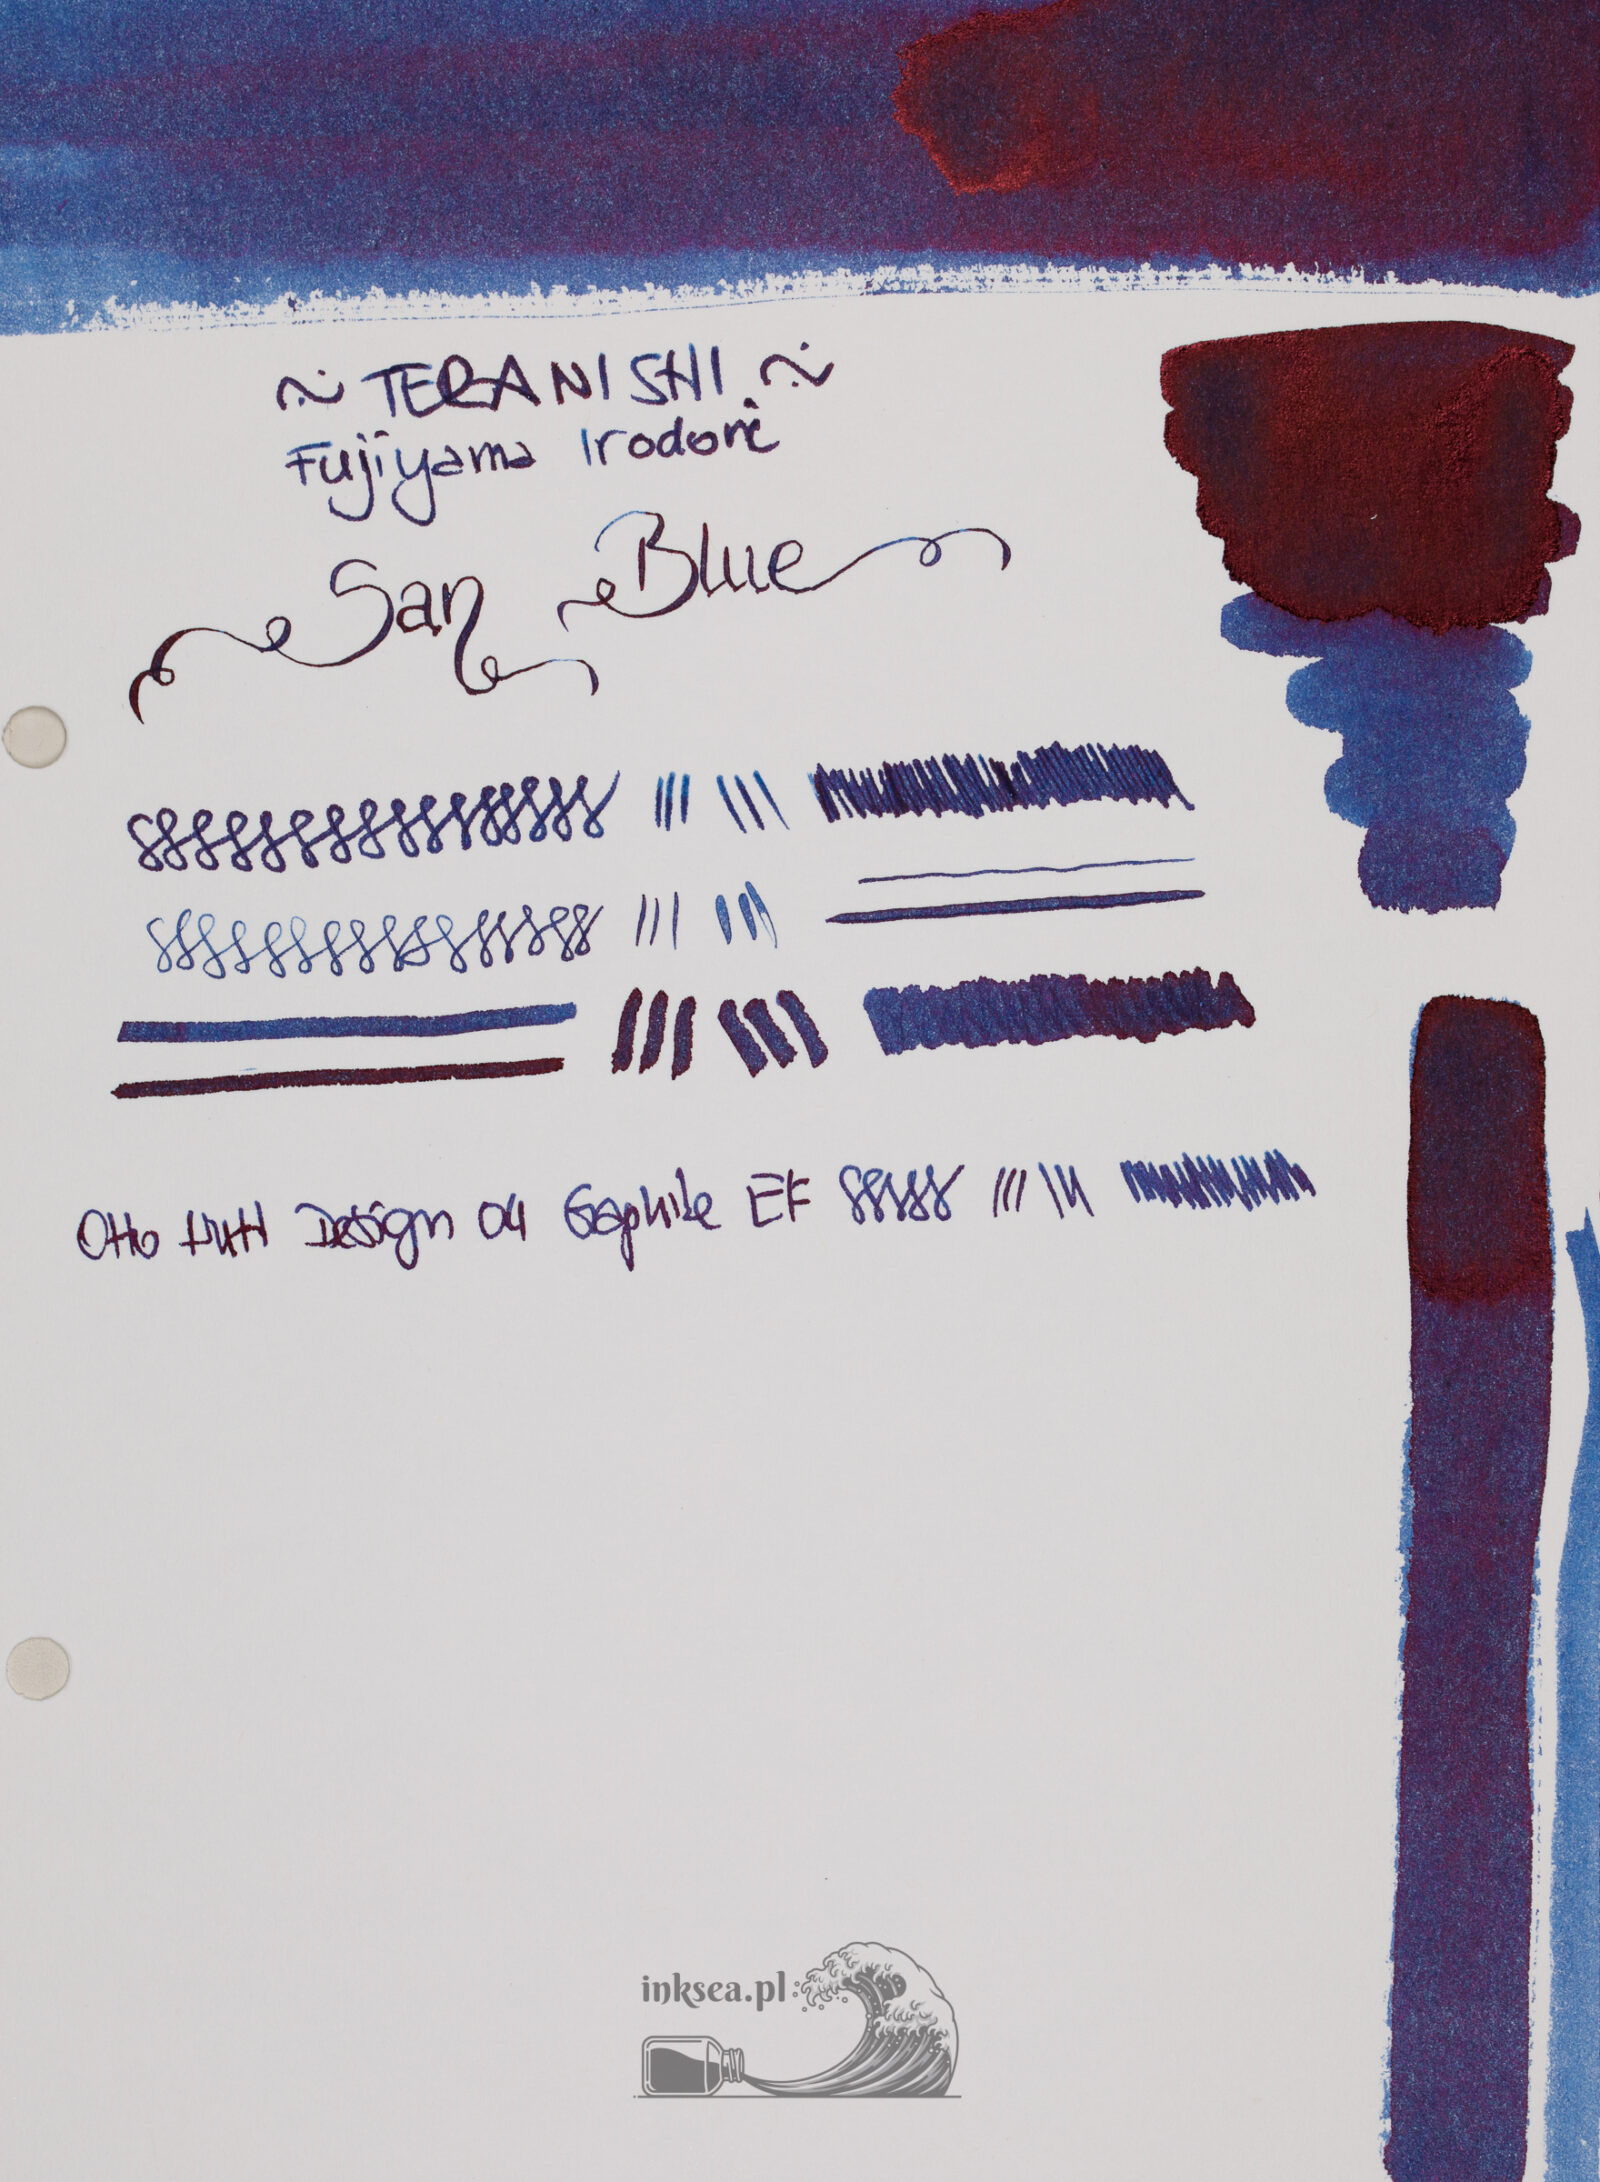 ~ TERANISHI ~
Fujiyama Irodori
San Blue
Otto Hutt Design 04 Graphite EF
inksea.pl